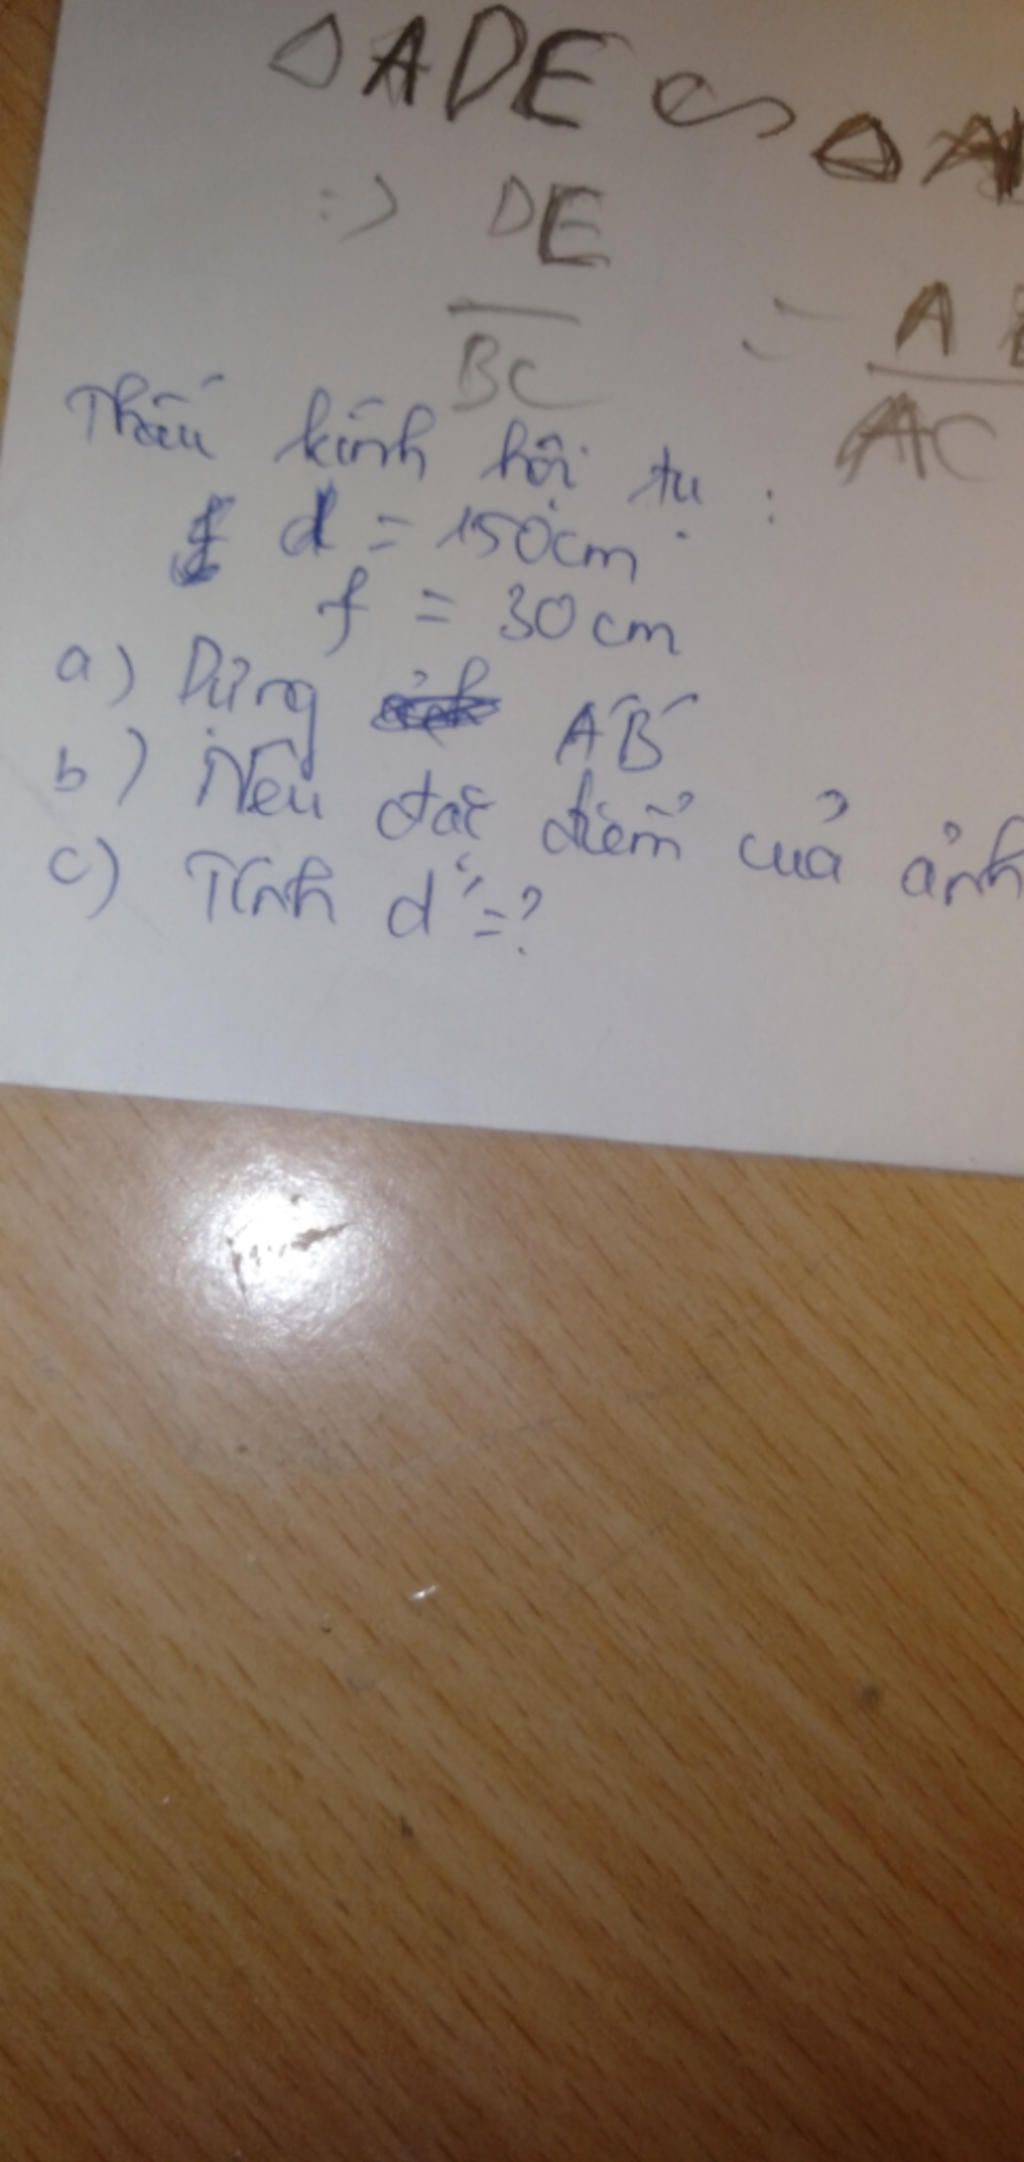 △ADE ∽ △A
=> DE/BC = AE/AC
Thấu kính hội tụ :
d = 150cm
f = 30cm
a) Dựng A'B'
b) Nêu đặc điểm của ảnh
c) Tính d' = ?